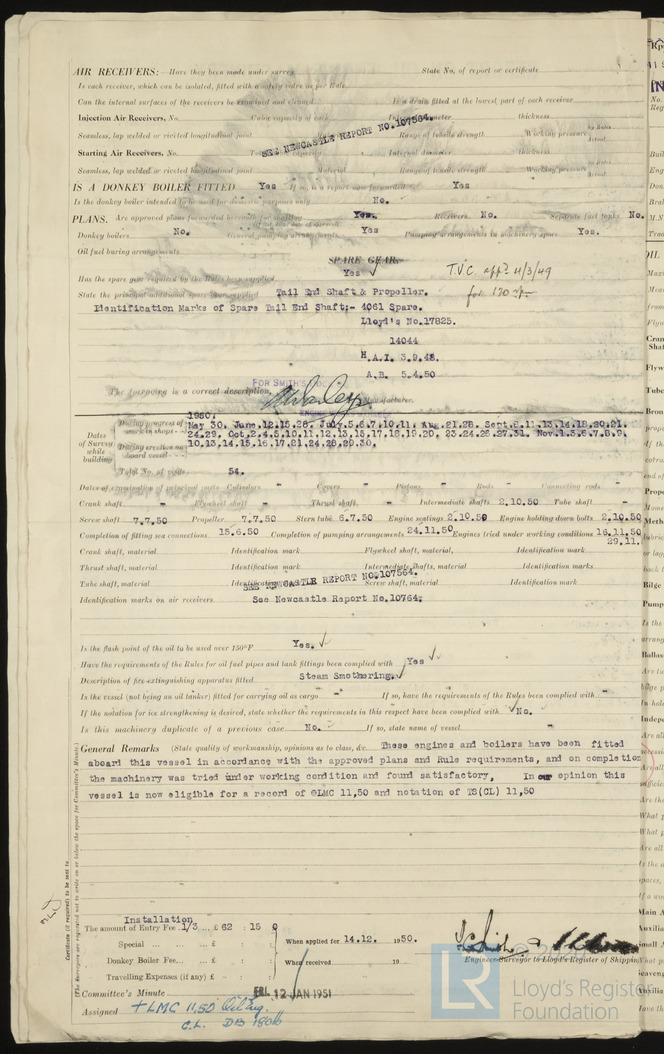 AIR RECEIVERS:—Have they been made under survey State No. of report or certificate
Is each receiver, which can be isolated, fitted with a safety valve as per Rule
Can the internal surfaces of the receivers be examined and cleaned Is a drain fitted at the lowest part of each receiver
Injection Air Receivers, No. Cubic capacity of each Internal diameter thickness
Seamless, lap welded or riveted longitudinal joint Material Range of tensile strength Working pressure by Rules Actual
SEE NEWCASTLE REPORT NO.107564.
Starting Air Receivers, No. Total cubic capacity Internal diameter thickness
Seamless, lap welded or riveted longitudinal joint Material Range of tensile strength Working pressure by Rules Actual
IS A DONKEY BOILER FITTED Yes If so, is a report now forwarded Yes
Is the donkey boiler intended to be used for domestic purposes only No.
PLANS. Are approved plans forwarded herewith for shafting Yes. Receivers No. Separate fuel tanks No.
Donkey boilers No. General pumping arrangements Yes Pumping arrangements in machinery space Yes.
Oil fuel burning arrangements
SPARE GEAR.
Has the spare gear required by the Rules been supplied Yes ✓ T.V.C. app'd 11/3/49
State the principal additional spare gear supplied Tail End Shaft & Propeller. for 120
Identification Marks of Spare Tail End Shaft:- 4061 Spare.
Lloyd's No.17825.
14044
H.A.I. 3.9.48.
A.B. 5.4.50
FOR SMITH'S DOCK
The foregoing is a correct description, Manufacturer.
Dates of Survey while building
1950.
During progress of work in shops - - May 30. June.12.15.26. July.5.6.7.10.11. Aug.21.28. Sept.6.11.13.14.18.20.21.
24.29. Oct.2.4.5.10.11.12.13.15.17.18.19.20. 23.24.26.27.31. Nov.1.5.6.7.8.9.
During erection on board vessel - - 10.13.14.15.16.17.21.24.28.29.30.
Total No. of visits 54.
Dates of examination of principal parts Cylinders - Covers - Pistons - Rods - Connecting rods -
Crank shaft - Flywheel shaft - Thrust shaft - Intermediate shafts 2.10.50 Tube shaft -
Screw shaft 7.7.50 Propeller 7.7.50 Stern tube 6.7.50 Engine seatings 2.10.50 Engine holding down bolts 2.10.50
Completion of fitting sea connections 15.6.50 Completion of pumping arrangements 24.11.50 Engines tried under working conditions 16.11.50
29.11.
Crank shaft, material Identification mark Flywheel shaft, material, Identification mark
Thrust shaft, material Identification mark Intermediate shafts, material Identification marks
Tube shaft, material Identification mark Screw shaft, material Identification mark
SEE NEWCASTLE REPORT NO.107564.
Identification marks on air receivers See Newcastle Report No.10764;
Is the flash point of the oil to be used over 150°F Yes. ✓
Have the requirements of the Rules for oil fuel pipes and tank fittings been complied with Yes ✓
Description of fire-extinguishing apparatus fitted Steam Smothering. ✓
Is the vessel (not being an oil tanker) fitted for carrying oil as cargo - If so, have the requirements of the Rules been complied with -
If the notation for ice strengthening is desired, state whether the requirements in this respect have been complied with ✓ No.
Is this machinery duplicate of a previous case No. If so, state name of vessel -
General Remarks (State quality of workmanship, opinions as to class, &c. These engines and boilers have been fitted
aboard this vessel in accordance with the approved plans and Rule requirements, and on completion
the machinery was tried under working condition and found satisfactory, In our opinion this
vessel is now eligible for a record of ⊕LMC 11,50 and notation of TS(CL) 11,50
Certificate (if required) to be sent to
(The Surveyors are requested not to write on or below the space for Committee's Minute.)
Installation
The amount of Entry Fee 1/3 ... £ 62 : 15 0
Special ... ... £ :
Donkey Boiler Fee... ... £ :
Travelling Expenses (if any) £ - :
When applied for 14.12. 1950.
When received 19
Engineer Surveyor to Lloyd's Register of Shipping
Committee's Minute FRI. 12 JAN 1951
Assigned + LMC 11,50 Oil Eng.
C.L. DB 180 lb
LR
© 2020
Lloyd's Register
Foundation